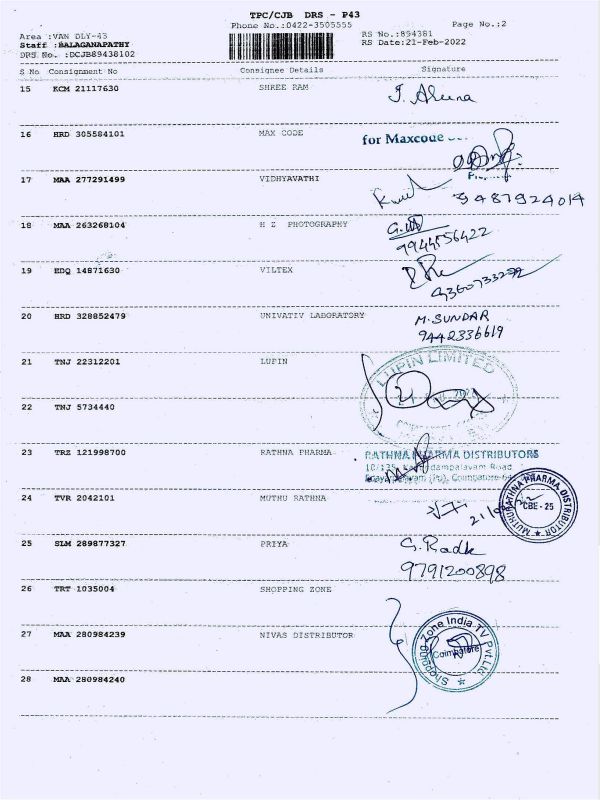 TPC/CJB DRS - P43
Phone No.:0422-3505555
Page No.:2
Area :VAN DLY-43
RS No.:894381
Staff :BALAGANAPATHY
RS Date:21-Feb-2022
DRS No. :DCJB89438102
S No Consignment No Consignee Details Signature
15 KCM 21117630 SHREE RAM
16 HRD 305584101 MAX CODE for Maxcode
17 MAA 277291499 VIDHYAVATHI 9487924014
18 MAA 263268104 H Z PHOTOGRAPHY
19 EDQ 14871630 VILTEX
20 HRD 328852479 UNIVATIV LABORATORY M.SUNDAR
9442336619
21 TNJ 22312201 LUPIN LUPIN LIMITED
22 TNJ 5734440
23 TRZ 121998700 RATHNA PHARMA RATHNA PHARMA DISTRIBUTORS
24 TVR 2042101 MUTHU RATHNA MUTHURATHNA PHARMA DISTRIBUTOR
CBE - 25
25 SLM 289877327 PRIYA
9791200898
26 TRT 1035004 SHOPPING ZONE
27 MAA 280984239 NIVAS DISTRIBUTOR Shopping Zone India TV Pvt.Ltd
Coimbatore
28 MAA 280984240